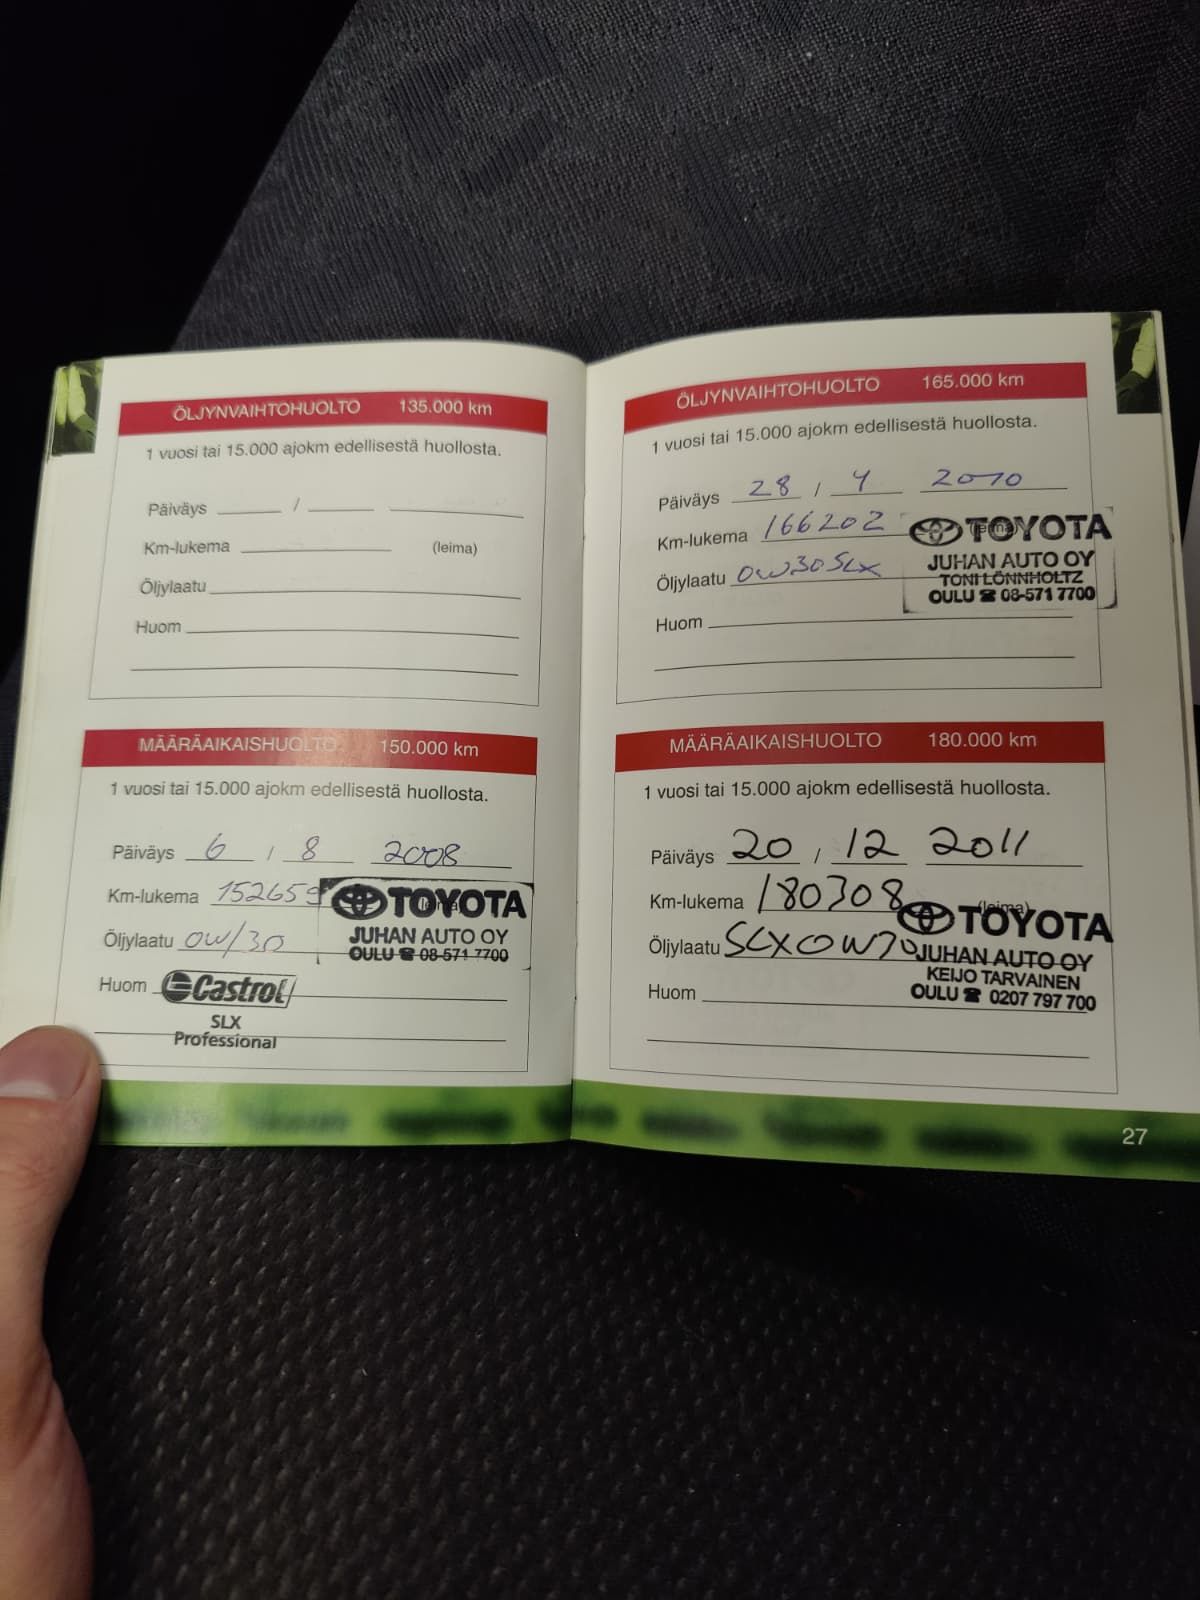 ÖLJYNVAIHTOHUOLTO 135.000 km
1 vuosi tai 15.000 ajokm edellisestä huollosta.
Päiväys /
Km-lukema (leima)
Öljylaatu
Huom
MÄÄRÄAIKAISHUOLTO 150.000 km
1 vuosi tai 15.000 ajokm edellisestä huollosta.
Päiväys 6 / 8 2008
Km-lukema 152659 TOYOTA
JUHAN AUTO OY
Öljylaatu 0W/30 OULU ☎ 08-571 7700
Huom Castrol
SLX
Professional
ÖLJYNVAIHTOHUOLTO 165.000 km
1 vuosi tai 15.000 ajokm edellisestä huollosta.
Päiväys 28 / 4 2010
Km-lukema 166202 (leima) TOYOTA
JUHAN AUTO OY
Öljylaatu 0W30SLX TONI LÖNNHOLTZ
OULU ☎ 08-571 7700
Huom
MÄÄRÄAIKAISHUOLTO 180.000 km
1 vuosi tai 15.000 ajokm edellisestä huollosta.
Päiväys 20 / 12 2011
Km-lukema 180308 (leima) TOYOTA
Öljylaatu SLX0W30 JUHAN AUTO OY
KEIJO TARVAINEN
Huom OULU ☎ 0207 797 700
27